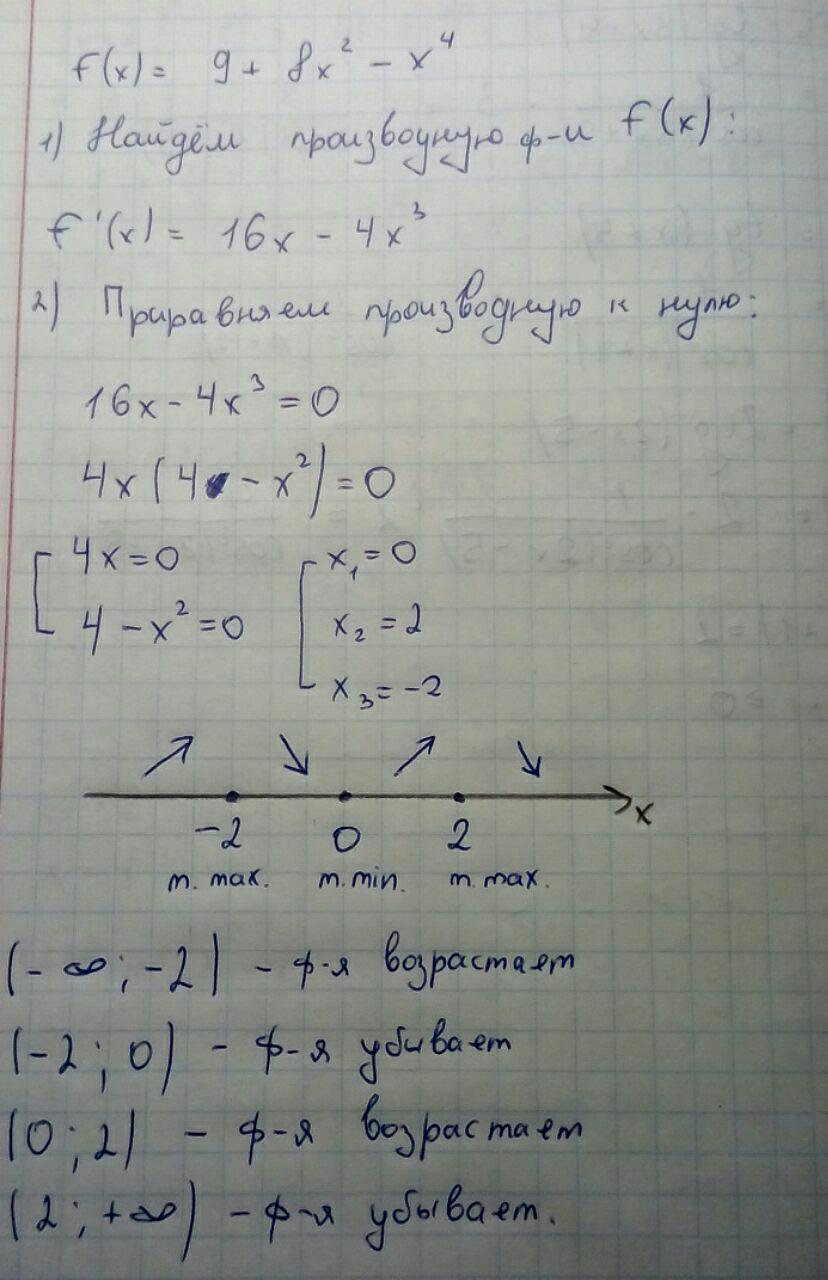 f(x) = 9 + 8x² - x⁴
1) Найдём производную ф-и f(x):
f'(x) = 16x - 4x³
2) Приравняем производную к нулю:
16x - 4x³ = 0
4x(4 - x²) = 0
[ 4x = 0 [ x₁ = 0
4 - x² = 0 x₂ = 2
x₃ = -2
↗ ↘ ↗ ↘
-2 0 2 x
т. max. т. min. т. max.
(-∞; -2) - ф-я возрастает
(-2; 0) - ф-я убивает
(0; 2) - ф-я возрастает
(2; +∞) - ф-я убывает.